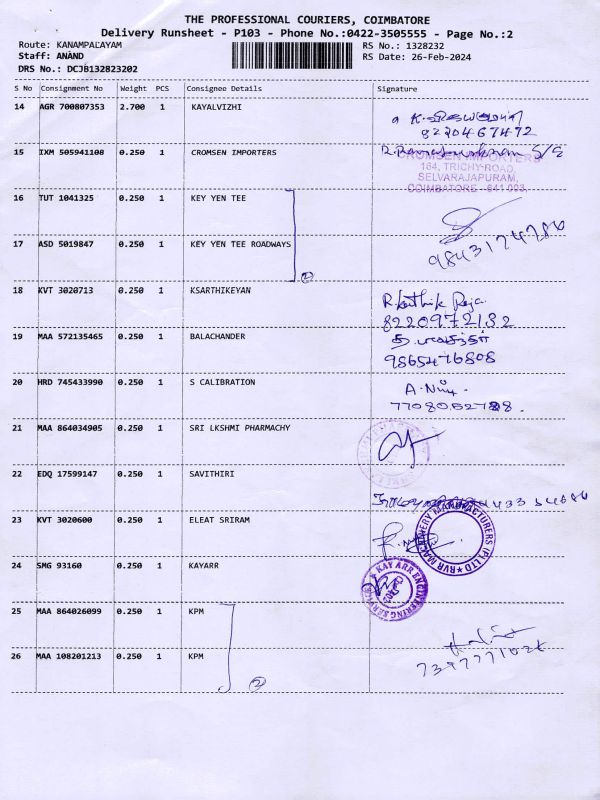 THE PROFESSIONAL COURIERS, COIMBATORE
Delivery Runsheet - P103 - Phone No.:0422-3505555 - Page No.:2
Route: KANAMPALAYAM RS No.: 1328232
Staff: ANAND RS Date: 26-Feb-2024
DRS No.: DCJB132823202
S No Consignment No Weight PCS Consignee Details Signature
14 AGR 700807353 2.700 1 KAYALVIZHI
8220467472
15 IXM 505941108 0.250 1 CROMSEN IMPORTERS
CROMSEN IMPORTERS
164, TRICHY ROAD,
SELVARAJAPURAM,
COIMBATORE - 641 003.
16 TUT 1041325 0.250 1 KEY YEN TEE
17 ASD 5019847 0.250 1 KEY YEN TEE ROADWAYS
9843174786
2
18 KVT 3020713 0.250 1 KSARTHIKEYAN
R. Karthik Raja
8220972132
19 MAA 572135465 0.250 1 BALACHANDER
9865476808
20 HRD 745433990 0.250 1 S CALIBRATION
21 MAA 864034905 0.250 1 SRI LKSHMI PHARMACHY
22 EDQ 17599147 0.250 1 SAVITHIRI
23 KVT 3020600 0.250 1 ELEAT SRIRAM
RVR MACHINERY MANUFACTURERS (P) LTD
24 SMG 93160 0.250 1 KAYARR
KAY ARR ENGINEERING SERVICE
25 MAA 864026099 0.250 1 KPM
26 MAA 108201213 0.250 1 KPM
2